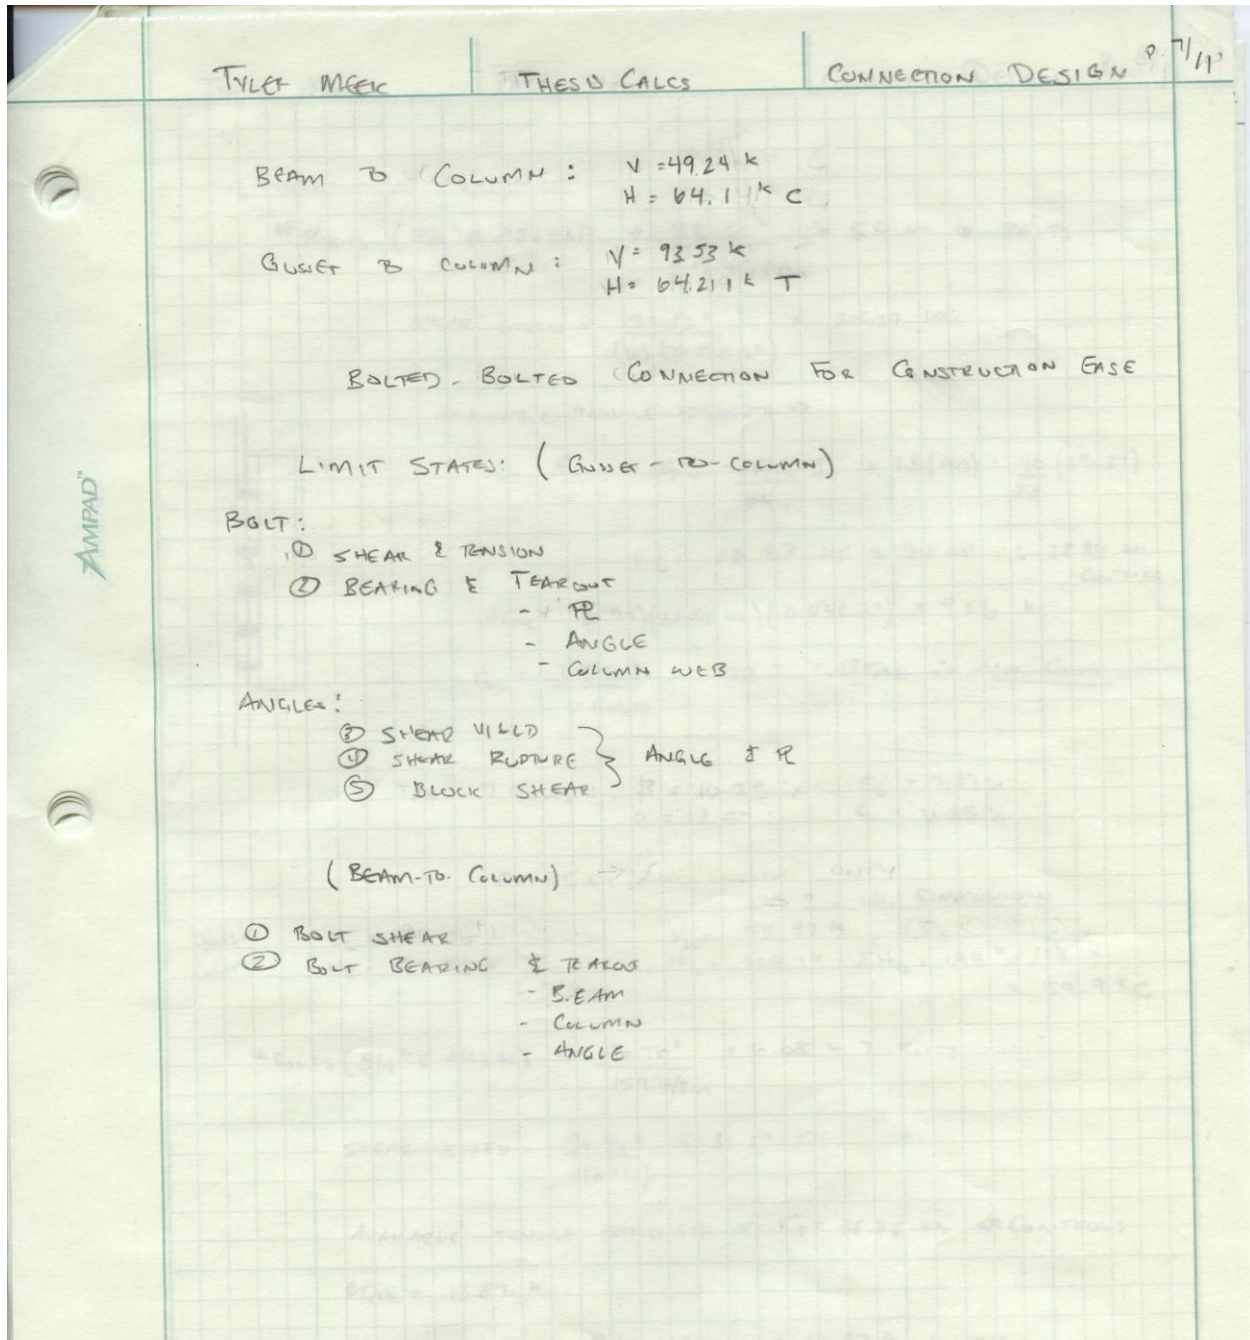 TYLER MEEK THESIS CALCS CONNECTION DESIGN P. 7/11
BEAM TO COLUMN : V = 49.24 k
H = 64.1 k C
GUSSET TO COLUMN : V = 93.53 k
H = 64.211 k T
BOLTED - BOLTED CONNECTION FOR CONSTRUCTION EASE
LIMIT STATES: (GUSSET - TO - COLUMN)
AMPAD™
BOLT:
① SHEAR & TENSION
② BEARING & TEAROUT
- PL
- ANGLE
- COLUMN WEB
ANGLES:
③ SHEAR YIELD
④ SHEAR RUPTURE } ANGLE & PL
⑤ BLOCK SHEAR
(BEAM-TO-COLUMN)
① BOLT SHEAR
② BOLT BEARING & TEAROUT
- BEAM
- COLUMN
- ANGLE